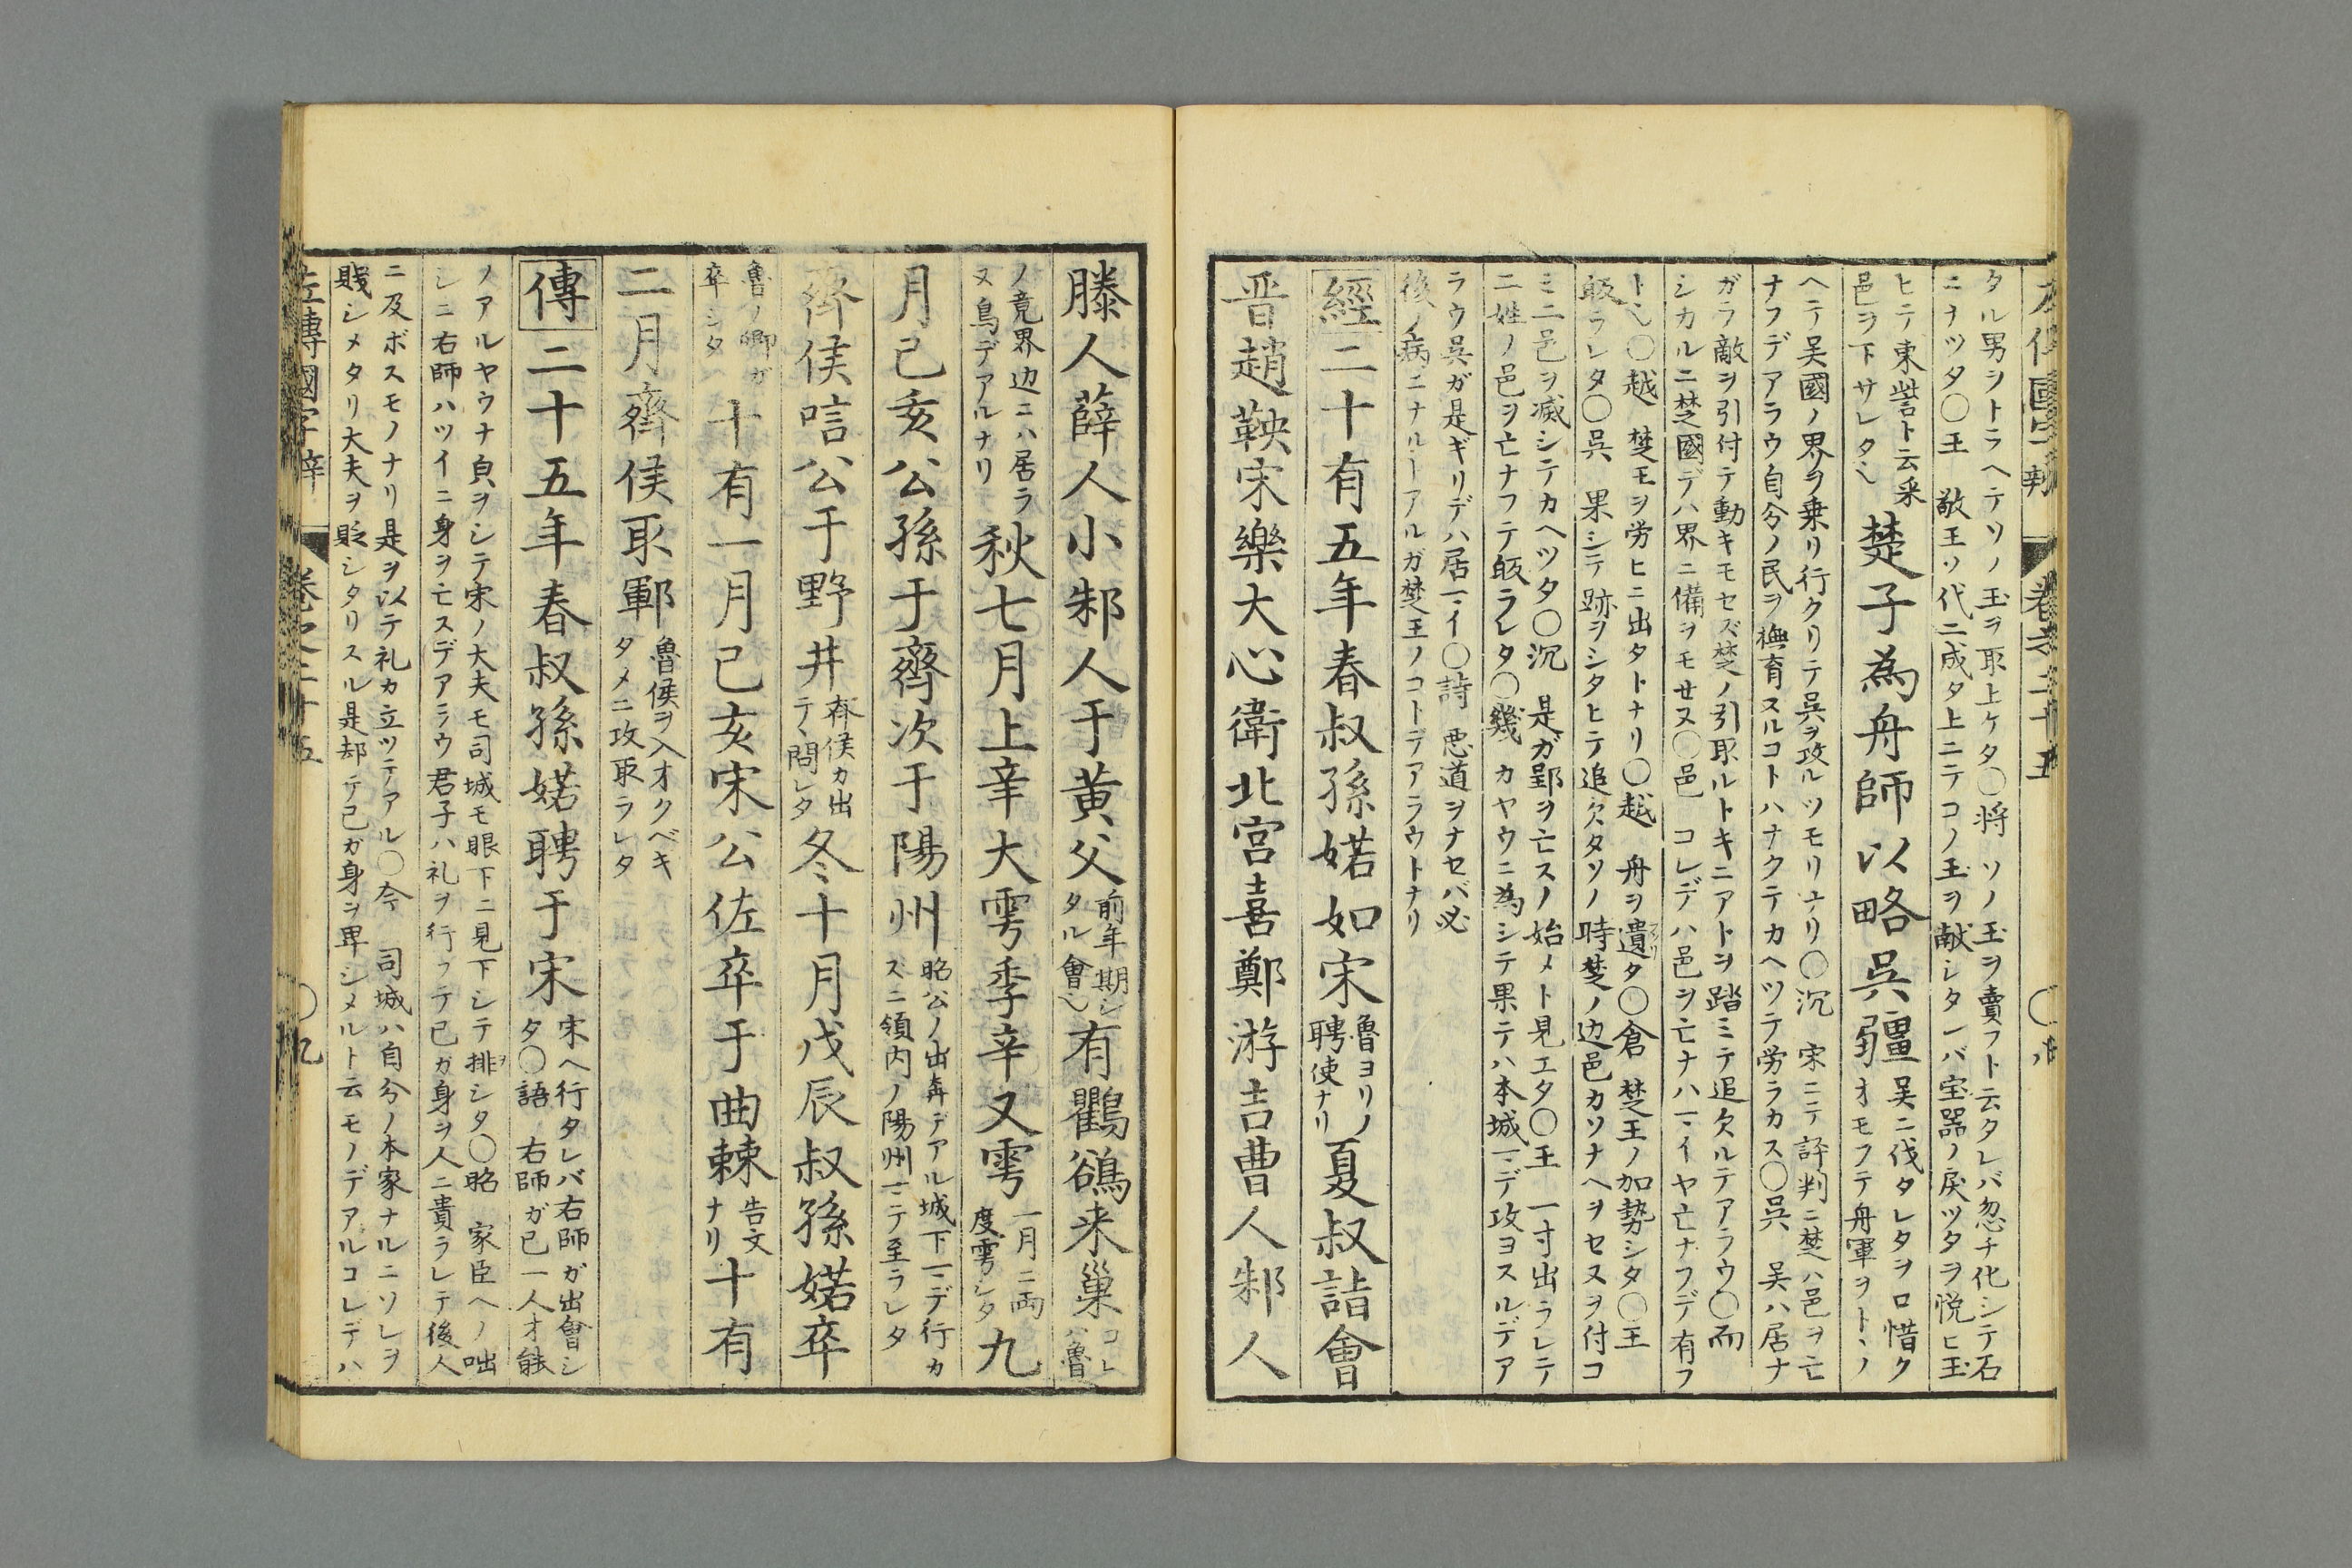 タル男ヲトラヘテソノ玉ヲ取上ケタ〇将 ソノ玉ヲ賣フト云タレバ忽チ化シテ石
ニナツタ〇王 敬王ソ代ニ成タ上ニテコノ玉ヲ献シタレバ宝器ノ戻ツタヲ悦ヒ玉
ヒテ東訾ト云采
邑ヲ下サレタ
楚子為舟師以略呉疆
呉ニ伐タレタヲロ惜ク
オモフテ舟軍ヲトヽノ
ヘテ吴國ノ界ヲ乗リ行クリテ呉ヲ攻ルツモリナリ〇沉 宋ニテ評判ニ楚ハ邑ヲ亡
ナフデアラウ自分ノ民ヲ撫育スルコトハナクテカヘツテ労ラカス〇呉 吴ハ居ナ
ガラ敵ヲ引付テ動キモセズ楚ノ引取ルトキニアトヲ踏ミテ追欠ルテアラウ〇而
シカルニ楚國デハ界ニ備ヲモセヌ〇邑 コレデハ邑ヲ亡ナハイヤ亡ナフデ有フ
〇越 楚王ヲ労ヒニ出タトナリ〇越 舟ヲ遺タ〇倉 楚王ノ加勢シタ〇王
皈ラレタ〇呉 果シテ跡ヲシタヒテ追欠タソノ時楚ノ边邑カソナヘヲセヌヲ付コ
ミ二邑ヲ滅シテカヘツタ〇沉 是ガ郢ヲ亡スノ始メト見エタ〇王 一寸出ラレテ
二姓ノ邑ヲ亡ナフテ皈ラレタ〇幾 カヤウニ為シテ果テハ本城マデ攻ヨスルデア
ラウ呉ガ是ギリデハ居マイ〇詩 悪道ヲナセバ必
後ノ病ニナルーアルガ楚王ノコトデアラウトナリ
經二十有五年春叔孫婼如宋
魯ヨリノ
聘使ナリ
夏叔詣會
晋趙鞅宋樂大心衛北宮喜鄭游吉曹人邾人
滕人薛人小邾人于黄父
前年期シ
タル會
有鸜鵒来巢
コレ
ハ魯
ノ竟界边ニハ居ラ
ヌ鳥デアルナリ
秋七月上辛大雩季辛又雩
一月ニ両
度雩シタ
九
月己亥公孫于齊次于陽州
昭公ノ出奔デアル城下マデ行カ
ズニ領内ノ陽州マテ至ラレタ
齊侯唁公于野井
斉侯カ出
テ問レタ
冬十月戊辰叔孫婼卒
魯ノ卿ガ
卒シタ
十有一月己亥宋公佐卒于曲棘
告文
ナリ
十有
二月齊侯取鄆
魯侯ヲ入オクベキ
タメニ攻取ラレタ
傳二十五年春叔孫婼聘于宋
宋ヘ行タレバ右師ガ出會シ
タ〇語 右師ガ已一人才能
ノアルヤウナ負ヲシテ宋ノ大夫モ司城モ眼下ニ見下シテ排シタ〇昭 家臣ヘノ咄
シニ右師ハツイニ身ヲ亡スデアラウ君子ハ礼ヲ行フテ已ガ身ヲ人ニ貴ラレテ後人
ニ及ボスモノナリ是ヲ以テ礼カ立ツテアル〇今 司城ハ自分ノ本家ナルニソレヲ
賤シメタリ大夫ヲ貶シタリスル是却テ己ガ身ヲ卑シメルト云モノデアルコレデハ
左傳國字辯 卷之二十五 〇九